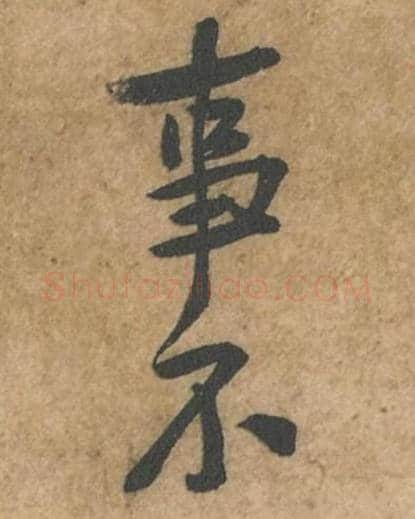 事不
Shufazidao.COM